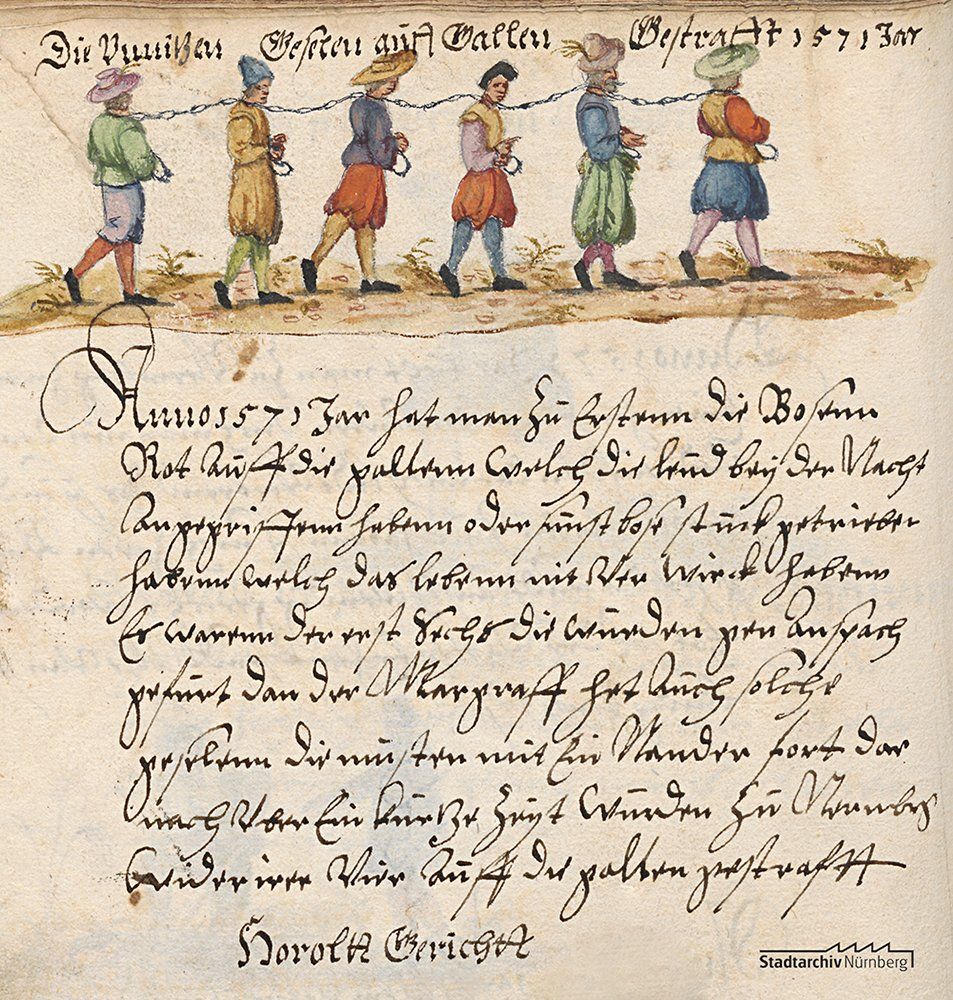 Die Vnnitzen Geselen auff Gallen Gestrafft 1571 Jar
Anno 1571 Jar hat man zu Erstenn die Bosenn
Rot Auff die gallenn welch die leud bey der Nacht
Angegriffenn habenn oder sunst bose stuck getrieben
habenn welch das lebenn nit Ver wirck habenn
Es warenn der erst Sechs die wurden gen anspach
gefurt dan der Margraff het Auch solche
geselenn die musten mit Ein Nander fort dar
nach Vber Ein kurtze Zeyt wurden zu Nornberg
wider irer Vier Auff die gallen gestrafft
Gerichtt
Stadtarchiv Nürnberg